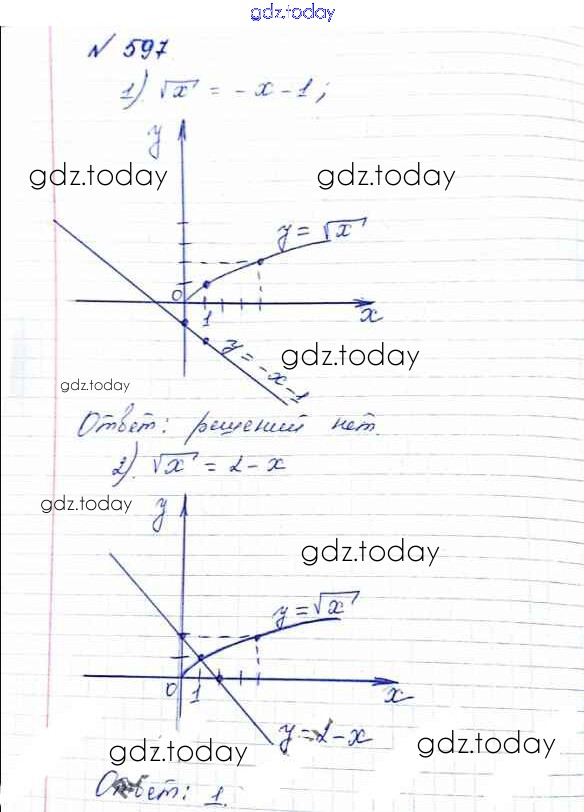 gdz.today
№ 597
1) √x = -x-1;
y
gdz.today gdz.today
y = √x
0 1 x
y = -x-1
gdz.today
gdz.today
Ответ: решений нет.
2) √x = 2-x
gdz.today
y
gdz.today
y = √x
0 1 x
y = 2-x
gdz.today gdz.today
Ответ: 1.